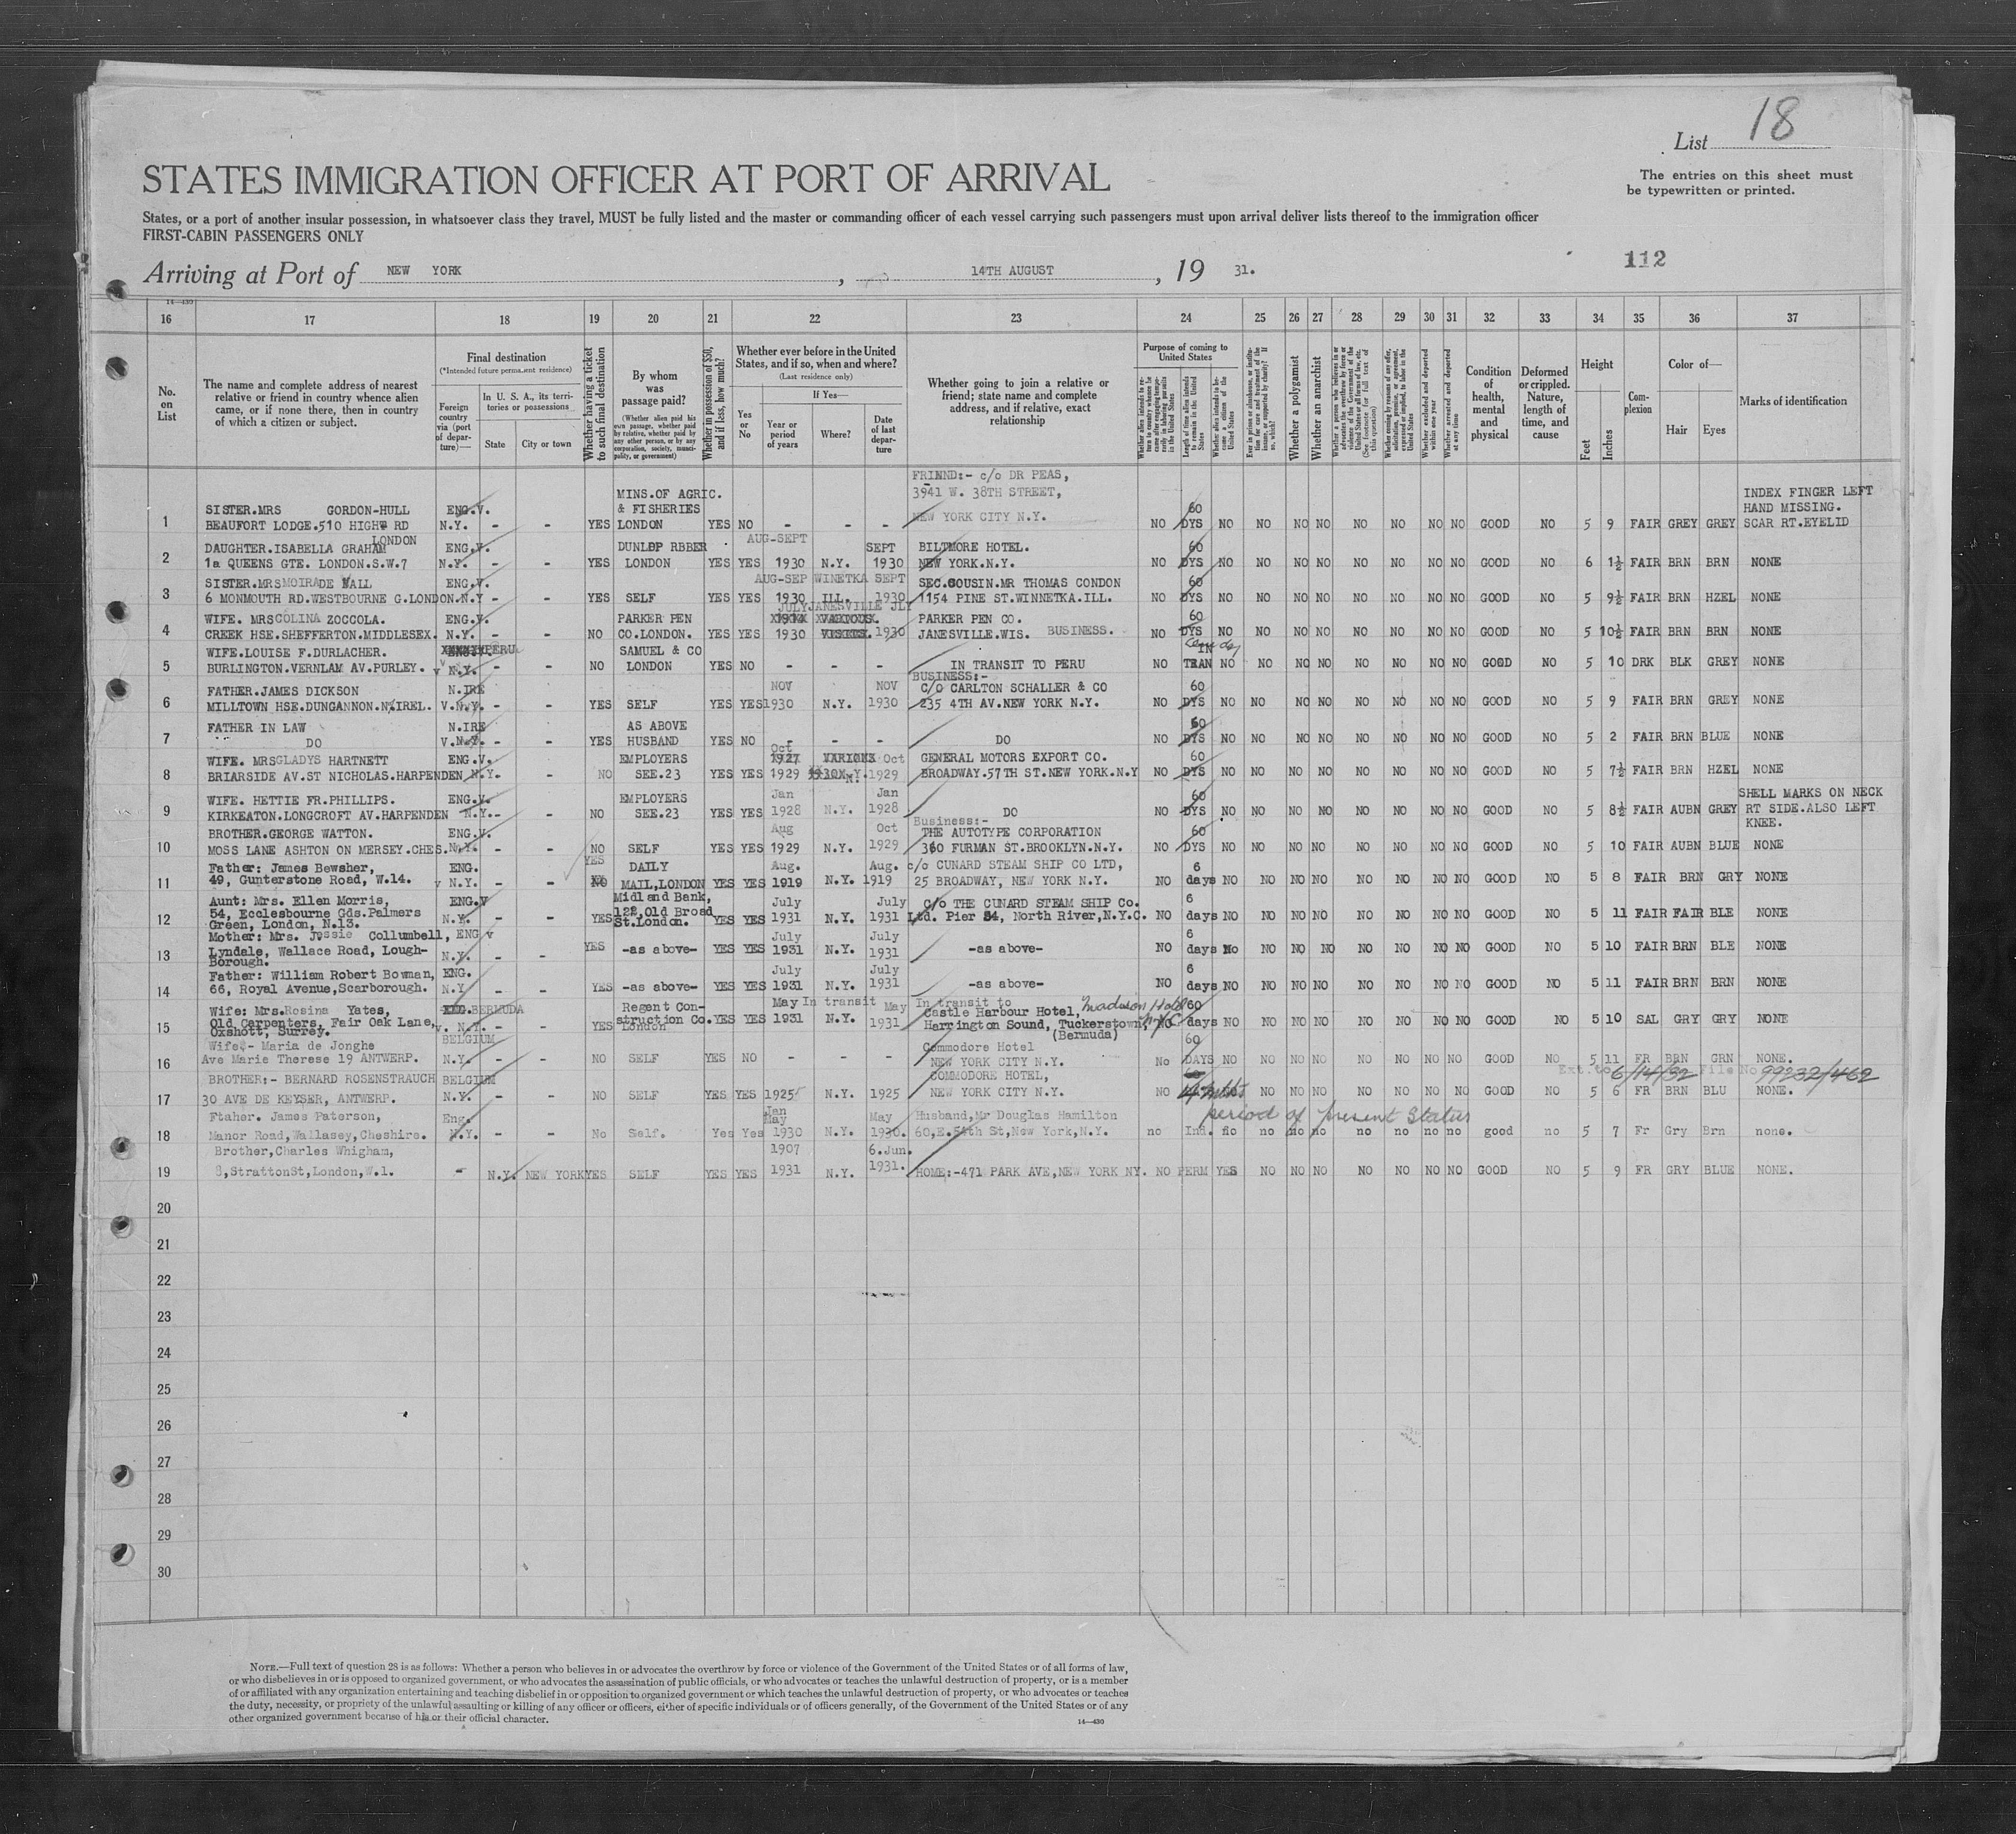 List 18
STATES IMMIGRATION OFFICER AT PORT OF ARRIVAL
The entries on this sheet must
be typewritten or printed.
States, or a port of another insular possession, in whatsoever class they travel, MUST be fully listed and the master or commanding officer of each vessel carrying such passengers must upon arrival deliver lists thereof to the immigration officer
FIRST-CABIN PASSENGERS ONLY
Arriving at Port of NEW YORK, 14TH AUGUST, 19 31.
112
14—430
16 17 18 19 20 21 22 23 24 25 26 27 28 29 30 31 32 33 34 35 36 37
No. on List
The name and complete address of nearest relative or friend in country whence alien came, or if none there, then in country of which a citizen or subject.
Final destination
(*Intended future permanent residence)
Foreign country via (port of departure)—
In U. S. A., its territories or possessions
State
City or town
Whether having a ticket to such final destination
By whom was passage paid?
(Whether alien paid his own passage, whether paid by relative, whether paid by any other person, or by any corporation, society, municipality, or government)
Whether in possession of $50, and if less, how much?
Whether ever before in the United States, and if so, when and where?
(Last residence only)
Yes or No
If Yes—
Year or period of years
Where?
Date of last departure
Whether going to join a relative or friend; state name and complete address, and if relative, exact relationship
Purpose of coming to United States
Length of time alien intends to remain in the United States
Whether alien intends to become a citizen of the United States
Whether a polygamist
Whether an anarchist
Whether excluded and deported within one year
Whether arrested and deported at any time
Condition of health, mental and physical
Deformed or crippled. Nature, length of time, and cause
Height
Feet
Inches
Complexion
Color of—
Hair
Eyes
Marks of identification
FRIEND:- c/o DR PEAS,
MINS.OF AGRIC. 3941 W. 38TH STREET, INDEX FINGER LEFT
SISTER.MRS GORDON-HULL ENG.V. & FISHERIES NEW YORK CITY N.Y. 60 HAND MISSING.
1 BEAUFORT LODGE.510 HIGH RD N.Y. - - YES LONDON YES NO - - - NO DYS NO NO NO NO NO NO NO NO GOOD NO 5 9 FAIR GREY GREY SCAR RT.EYELID
LONDON AUG-SEPT
2 DAUGHTER.ISABELLA GRAHAM ENG.V. DUNLOP RBBER SEPT BILTMORE HOTEL. 60
1a QUEENS GTE. LONDON.S.W.7 N.Y. - - YES LONDON YES YES 1930 N.Y. 1930 NEW YORK.N.Y. NO DYS NO NO NO NO NO NO NO NO GOOD NO 6 1½ FAIR BRN BRN NONE
AUG-SEP WINETKA SEPT
SISTER.MRS MOIRA DE WALL ENG.V. SEC.COUSIN.MR THOMAS CONDON 60
3 6 MONMOUTH RD.WESTBOURNE G.LONDON.N.Y - - YES SELF YES YES 1930 ILL. 1930 1154 PINE ST.WINNETKA.ILL. NO DYS NO NO NO NO NO NO NO NO GOOD NO 5 9½ FAIR BRN HZEL NONE
JULY JANESVILLE JLY
WIFE. MRS COLINA ZOCCOLA. ENG.V. PARKER PEN PARKER PEN CO. 60
4 CREEK HSE.SHEFFERTON.MIDDLESEX. N.Y. - - NO CO.LONDON. YES YES 1930 1930 JANESVILLE.WIS. BUSINESS. NO DYS NO NO NO NO NO NO NO NO GOOD NO 5 10½ FAIR BRN BRN NONE
WIFE.LOUISE F.DURLACHER. PERU SAMUEL & CO IN
5 BURLINGTON.VERNLAM AV.PURLEY. v N.Y. - - NO LONDON YES NO - - - IN TRANSIT TO PERU NO TRAN NO NO NO NO NO NO NO NO GOOD NO 5 10 DRK BLK GREY NONE
BUSINESS:-
FATHER.JAMES DICKSON N.IRE NOV NOV C/O CARLTON SCHALLER & CO 60
6 MILLTOWN HSE.DUNGANNON.N.IREL. V.N.Y. - - YES SELF YES YES 1930 N.Y. 1930 235 4TH AV.NEW YORK N.Y. NO DYS NO NO NO NO NO NO NO NO GOOD NO 5 9 FAIR BRN GREY NONE
FATHER IN LAW N.IRE AS ABOVE 60
7 DO V.N.Y. - - YES HUSBAND YES NO - - - DO NO DYS NO NO NO NO NO NO NO NO GOOD NO 5 2 FAIR BRN BLUE NONE
Oct
WIFE. MRS GLADYS HARTNETT ENG.V. EMPLOYERS 1927 VARIOUS Oct GENERAL MOTORS EXPORT CO. 60
8 BRIARSIDE AV.ST NICHOLAS.HARPENDEN N.Y. - NO SEE.23 YES YES 1929 N.Y. 1929 BROADWAY.57TH ST.NEW YORK.N.Y NO DYS NO NO NO NO NO NO NO NO GOOD NO 5 7½ FAIR BRN HZEL NONE
WIFE. HETTIE FR.PHILLIPS. ENG.V. EMPLOYERS Jan Jan 60 SHELL MARKS ON NECK
9 KIRKEATON.LONGCROFT AV.HARPENDEN N.Y.- - NO SEE.23 YES YES 1928 N.Y. 1928 DO NO DYS NO NO NO NO NO NO NO NO GOOD NO 5 8½ FAIR AUBN GREY RT SIDE.ALSO LEFT KNEE.
Business:-
BROTHER.GEORGE WATTON. ENG.V. Aug Oct THE AUTOTYPE CORPORATION 60
10 MOSS LANE ASHTON ON MERSEY.CHES. N.Y. - - NO SELF YES YES 1929 N.Y. 1929 360 FURMAN ST.BROOKLYN.N.Y. NO DYS NO NO NO NO NO NO NO NO GOOD NO 5 10 FAIR AUBN BLUE NONE
Father: James Bewsher, ENG. YES DAILY Aug. Aug. c/o CUNARD STEAM SHIP CO LTD, 6
11 49, Gunterstone Road, W.14. v N.Y. - - MAIL,LONDON YES YES 1919 N.Y. 1919 25 BROADWAY, NEW YORK N.Y. NO days NO NO NO NO NO NO NO NO GOOD NO 5 8 FAIR BRN GRY NONE
Aunt: Mrs. Ellen Morris, ENG.V Midland Bank, July July C/o THE CUNARD STEAM SHIP Co. 6
12 54, Ecclesbourne Gds.Palmers Green, London, N.13. N.Y. - - YES 122,Old Broad St.London. YES YES 1931 N.Y. 1931 Ltd. Pier 54, North River,N.Y.C. NO days NO NO NO NO NO NO NO NO GOOD NO 5 11 FAIR FAIR BLE NONE
Mother: Mrs. Jessie Collumbell, ENG v July July 6
13 Lyndale, Wallace Road, Lough-Borough. N.Y. - - YES -as above- YES YES 1931 N.Y. 1931 -as above- NO days No NO NO NO NO NO NO NO GOOD NO 5 10 FAIR BRN BLE NONE
Father: William Robert Bowman, ENG. July July 6
14 66, Royal Avenue,Scarborough. N.Y - - YES -as above- YES YES 1931 N.Y. 1931 -as above- NO days NO NO NO NO NO NO NO NO GOOD NO 5 11 FAIR BRN BRN NONE
Wife: Mrs.Rosina Yates, BERMUDA Regent Con- May In transit May In transit to Madison Hotel 60
15 Old Carpenters, Fair Oak Lane, Oxshott, Surrey. v. N.Y. - - YES struction Co. London YES YES 1931 N.Y. 1931 Castle Harbour Hotel, Harrington Sound, Tuckerstown, (Bermuda) NYC NO days NO NO NO NO NO NO NO NO GOOD NO 5 10 SAL GRY GRY NONE
Wife:- Maria de Jonghe BELGIUM Commodore Hotel 60
16 Ave Marie Therese 19 ANTWERP. N.Y. - - NO SELF YES NO - - - NEW YORK CITY N.Y. No DAYS NO NO NO NO NO NO NO NO GOOD NO 5 11 FR BRN GRN NONE.
Ext. to 6/14/32 File No 99232/462
BROTHER:- BERNARD ROSENSTRAUCH BELGIUM COMMODORE HOTEL,
17 30 AVE DE KEYSER, ANTWERP. N.Y. - - NO SELF YES YES 1925 N.Y. 1925 NEW YORK CITY N.Y. NO NO NO NO NO NO NO NO NO GOOD NO 5 6 FR BRN BLU NONE.
period of present status
Ftaher. James Paterson, Eng. Jan May May Husband,Mr Douglas Hamilton
18 Manor Road,Wallasey,Cheshire. N.Y. - - No Self. Yes Yes 1930 N.Y. 1930. 60,E.54th St,New York,N.Y. no Ind. no no no no no no no no good no 5 7 Fr Gry Brn none.
Brother,Charles Whigham, 1907 6.Jun.
19 8,StrattonSt,London,W.1. - N.Y. NEW YORK YES SELF YES YES 1931 N.Y. 1931. HOME:-471 PARK AVE,NEW YORK NY. NO PERM YES NO NO NO NO NO NO NO GOOD NO 5 9 FR GRY BLUE NONE.
20
21
22
23
24
25
26
27
28
29
30
NOTE.—Full text of question 28 is as follows: Whether a person who believes in or advocates the overthrow by force or violence of the Government of the United States or of all forms of law,
or who disbelieves in or is opposed to organized government, or who advocates the assassination of public officials, or who advocates or teaches the unlawful destruction of property, or is a member
of or affiliated with any organization entertaining and teaching disbelief in or opposition to organized government or which teaches the unlawful destruction of property, or who advocates or teaches
the duty, necessity, or propriety of the unlawful assaulting or killing of any officer or officers, either of specific individuals or of officers generally, of the Government of the United States or of any
other organized government because of his or their official character.
14—430